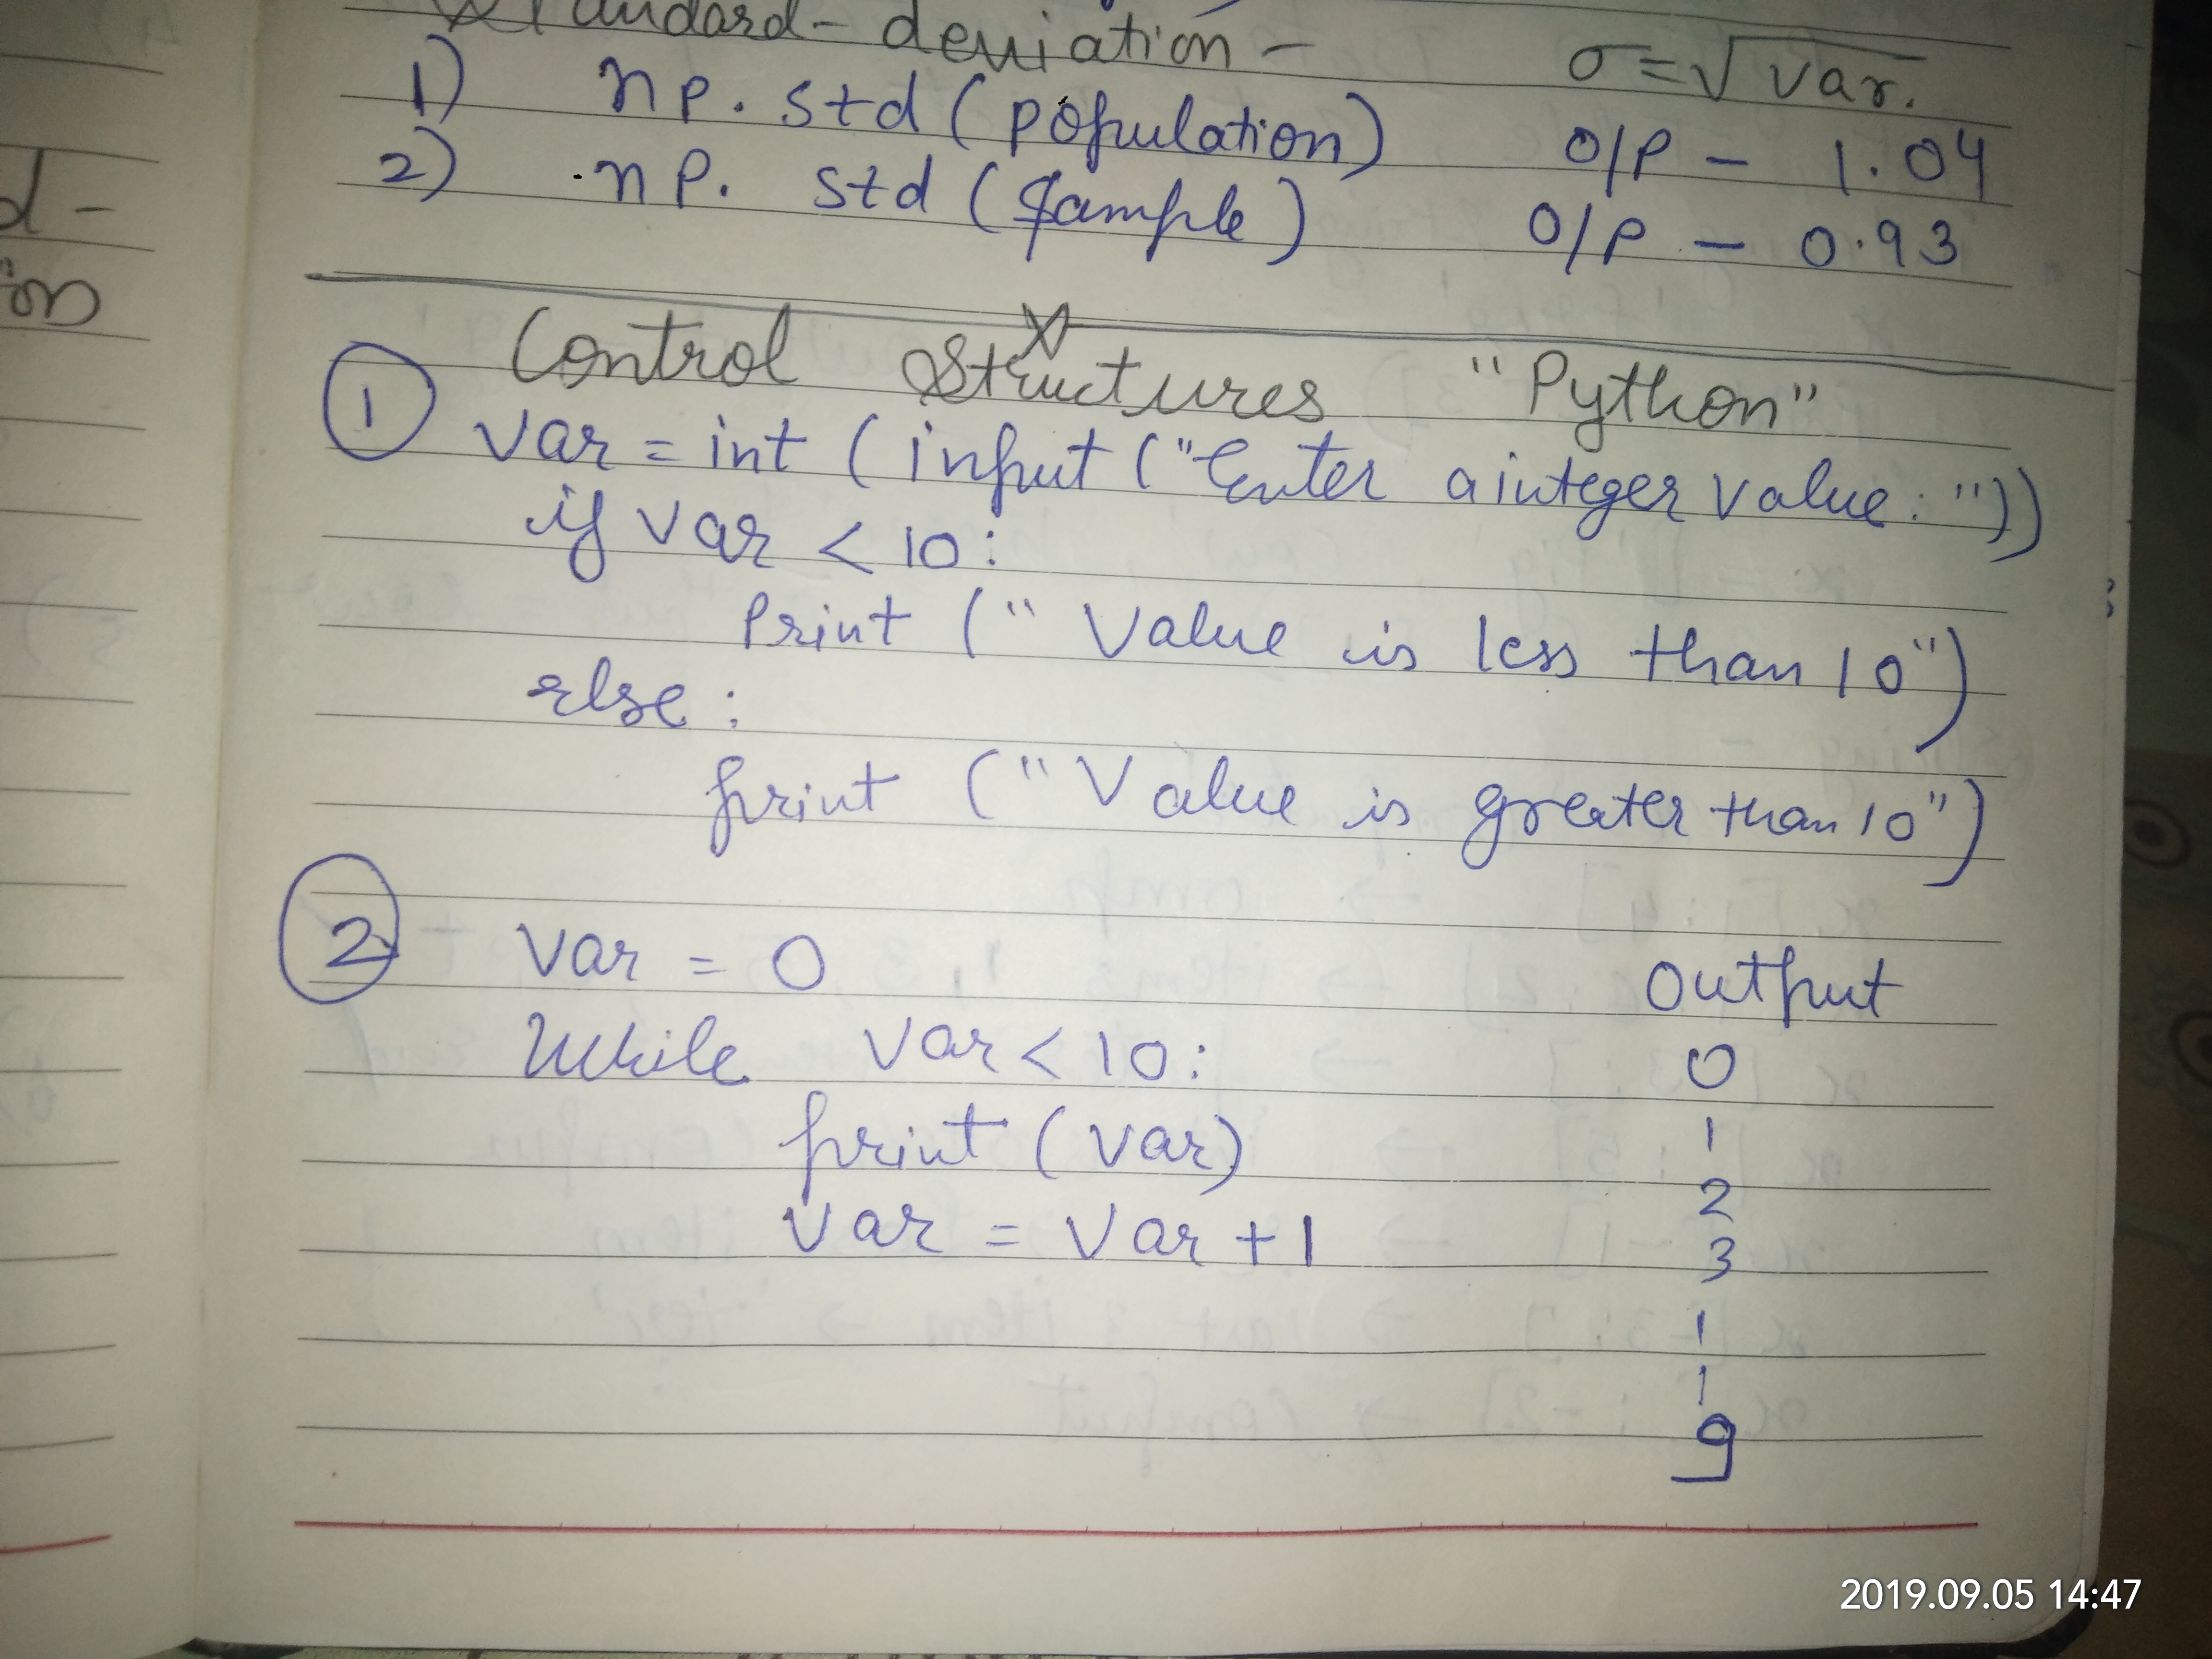 Standard - deviation - σ = √var.
1) np.std (population) O/P - 1.04
2) np. std (Sample) O/P - 0.93
d -
on
Control Structures "Python"
1 var = int (input ("Enter a integer value: "))
if var < 10:
Print (" Value is less than 10")
else :
print (" Value is greater than 10")
2 var = 0 Output
While var < 10: 0
print (var) 1
2
var = var + 1 3
1
1
9
2019.09.05 14:47